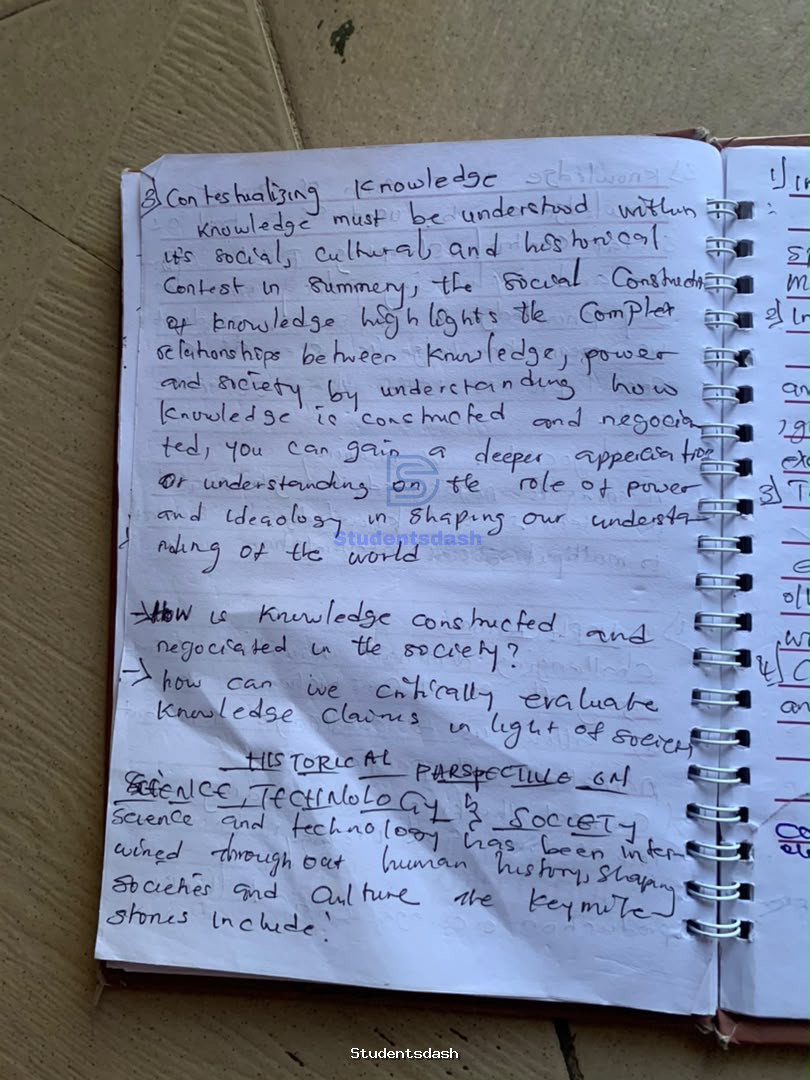 3) Contestualizing Knowledge
Knowledge must be understood within
its social, cultural, and historical
Contest in summery, the social Constructn
of knowledge highlights the Complex
relationships between knowledge, power
and society by understanding how
Knowledge is constructed and negocia
ted, you can gain a deeper
or understanding on the role of power
and ideaology in shaping our understa-
nding of the world
→ How is knowledge constructed and
negociated in the society?
→ how can we critically evaluate
Knowledge claims in light of society
HISTORICAL PARSPECTIVE ON
SCIENCE, TECHNOLOGY & SOCIETY
Science and technology has been inter-
wined through out human history, shaping
societies and Culture the key mile-
stones include:
1) in
:
sp
m
2) In
an
, g
exa
3) T
e
oll
wi
4) C
an
Studentsdash
Studentsdash